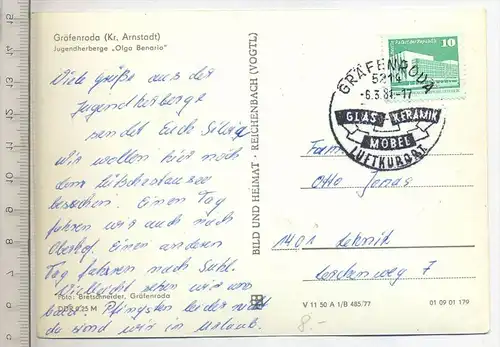 Gräfenroda (Kr. Arnstadt)
Jugendherberge „Olga Benario"
Viele Grüße aus der
Jugendherberge
sendet Euch Silvia
Wir wollen hier noch
den Lütschestausee
besuchen. Einen Tag
fahren wir auch nach
Oberhof. Einen anderen
Tag fahren nach Suhl.
Vielleicht sehen wir uns
bald. Pfingsten leider nicht
da sind wir in Urlaub.
Foto: Bretschneider, Gräfenroda
DDR 0,25 M
BILD UND HEIMAT · REICHENBACH (VOGTL)
10
GRÄFENRODA
5214
-6.3.81-17
GLAS KERAMIK
MÖBEL
LUFTKURORT
Fam
Otto Jonas
1401 Lehnitz
Lerchenweg 7
V 11 50 A 1/B 485.77
01 09 01 179
8.-